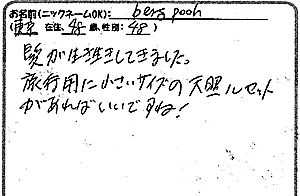 お名前(ニックネームOK): bers pooh
(東京 在住、48 歳、性別: 48 )
髪が生き生きしてきました。
旅行用に小さいサイズの天照ルセット
があればいいですね!